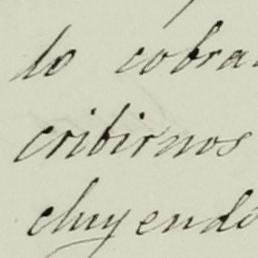 lo cobra
cribirnos
cluyendo